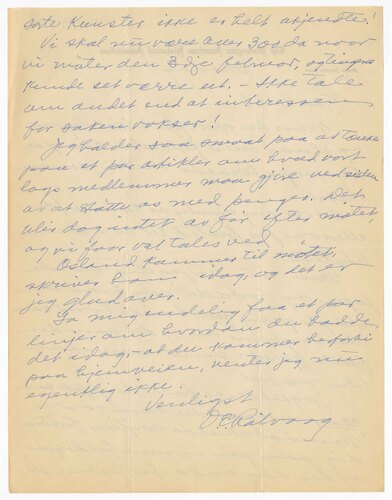 sorte Kunster ikke er helt ukjendte!
Vi skal nu være over 300 da naar
vi møter den 3dje februar, og tingene
kunde set værre ut. - Ikke tale
om andet end at interessen
for saken vokser!
Jeg holder saa smaat paa at tænke
paa et par artikler om hvad vort
lags medlemmer maa gjøre ved siden
av at støtte os med penger. Det
blir dog intet av før efter møtet,
og vi faar vel tales ved.
Osland kommer til møtet,
skriver han idag, og det er
jeg glad over.
La mig endelig faa et par
linjer om hvordan du hadde
det idag, - at du kommer her forbi
paa hjemveien, venter jeg nu
egentlig ikke.
Venligst
O.E. Rølvaag